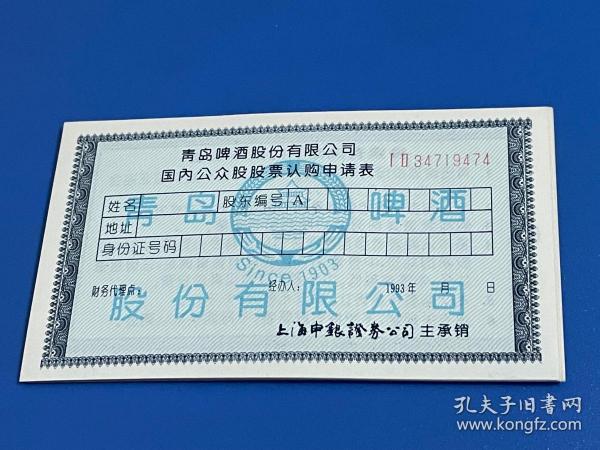 青岛啤酒股份有限公司
国内公众股股票认购申请表
ID 34719474
姓名 股东编号 A
地址
身份证号码
青岛 啤酒
Since 1903
财务代理点: 经办人: 1993年 月 日
股份有限公司
上海申銀證券公司 主承销
孔夫子旧书网
www.kongfz.com